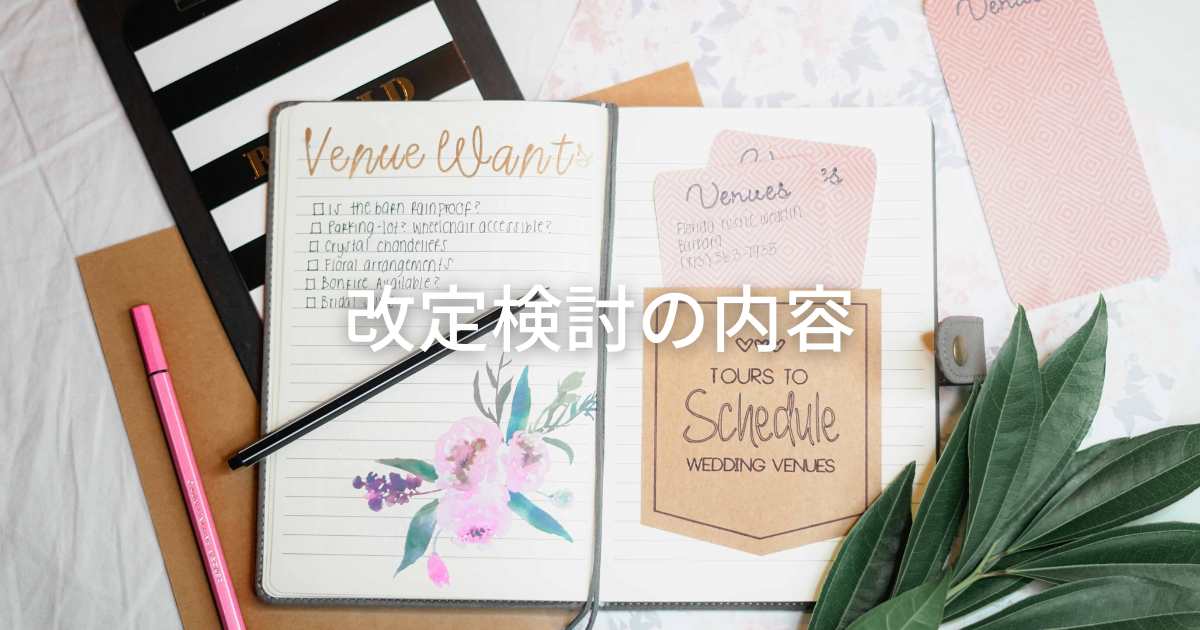 Venue Wants
Is the barn rainproof?
Parking-lot? Wheelchair accessible?
Crystal chandeliers
Floral arrangements
Bonfire Available?
Bridal
Venues
Venues 's
Florida rustic
Barbara
改定検討の内容
TOURS TO
Schedule
WEDDING VENUES